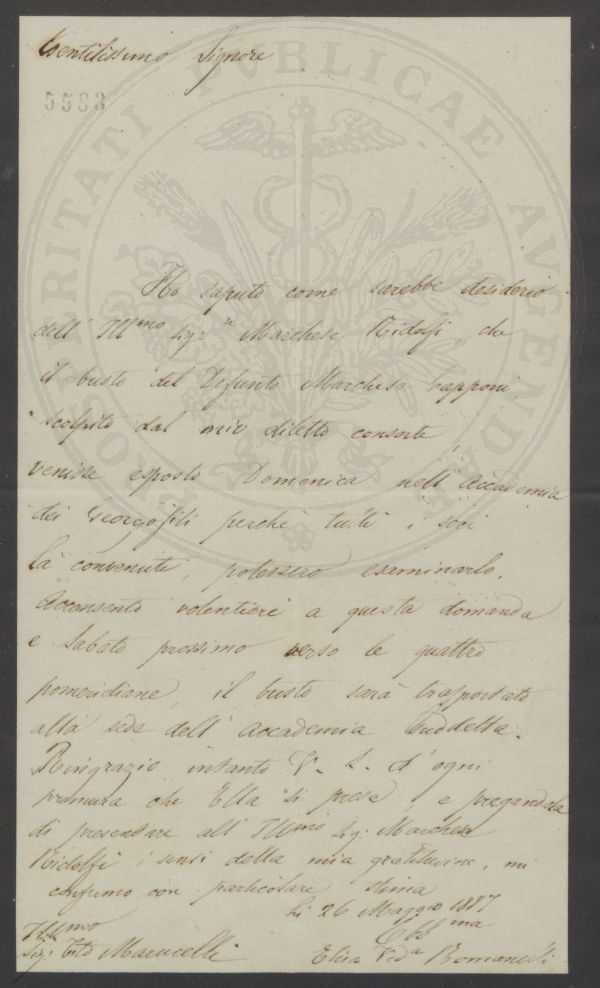 Gentilissimo Signore
5583
PROSPERITATI PVBLICAE AVGENDAE
Ho saputo come sarebbe desiderio
dell' Illmo Sigr Marchese Ridolfi, che
il busto del Defunto Marchese Capponi
scolpito dal mio diletto consorte,
venisse esposto Domenica nell'Accademia
dei Georgofili perchè tutti i soci
là convenuti, potessero esaminarlo.
Acconsento volentieri a questa domanda
e Sabato prossimo verso le quattro
pomeridiane, il busto sarà trasportato
alla sede dell' Accademia Suddetta.
Ringrazio intanto V. S. d'ogni
premura che Ella si prese, e pregandola
di presentare all' Illmo Sig. Marchese
Ridolfi i sensi della mia gratitudine, mi
confermo con particolare stima
Li 26 Maggio 1887
Obbma
Illmo
Sig. Marucelli
Elisa Veda Romanelli